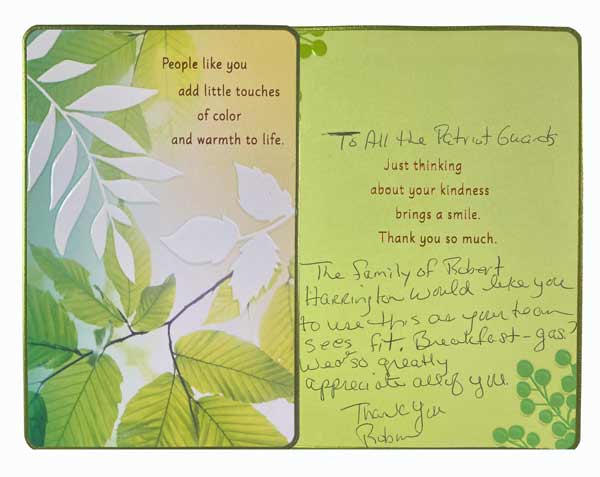 People like you
add little touches
of color
and warmth to life.
To All the Patriot Guards
Just thinking
about your kindness
brings a smile.
Thank you so much.
The family of Robert
Harrington would like you
to use this as your team
sees fit. Breakfast-gas?
so greatly
appreciate all of you.
Thank you
Robin